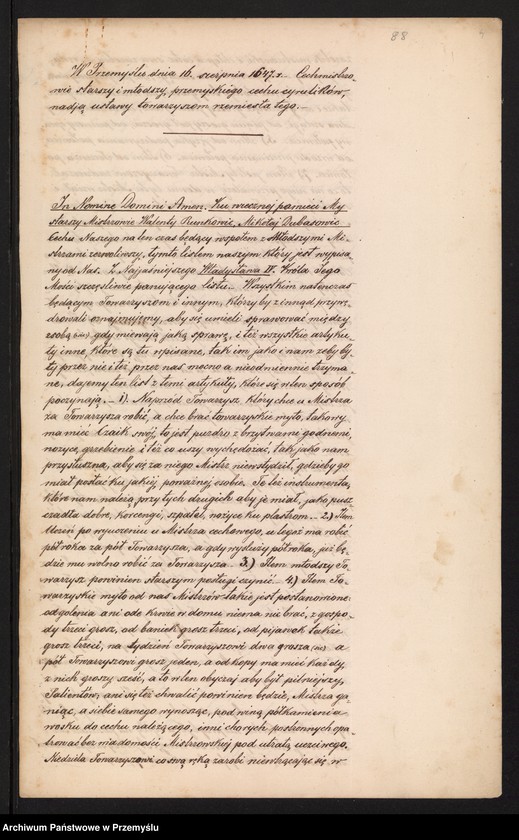 88
W Przemyślu dnia 16. sierpnia 1647.r. Cechmistrzo-
wie starszy i młodszy, przemyskiego cechu cyrulików,
nadją ustawy towarzyszom rzemiosła tego.
In Nomine Domini Amen. Ku wiecznej pamięci My
starszy Mistrzowie Walenty Mikołaj Dubasowic
Cechu Naszego na ten czas będący wspołem z Młodszymi Mi-
strzami zezwoliwszy, tymto listem naszym który jest wypisa-
ny od Nas. Z Najaśniejszego Władysława IV. Króla Jego
Mości szczęśliwie panującego listu. Wszystkim natenczas
będącym Towarzyszom i innym, którzy by zinnąd przywę-
drowali oznajmujemy, aby się umieli sprawować między
zsobą (sic) gdy miewają jaką sprawę, i też wszystkie artyku-
ły inne, które są tu wpisane, tak im jako i nam żeby by-
ły przez nie i też przez nas mocno a nieodmiennie trzyma-
ne, dajemy ten list z temi artykuły, które się w ten sposób
poczynają. 1). Naprzód Towarzysz, który chce u Mistrza
za Towarzysza robić, a chce brać towarzyskie myto, takowy
ma mieć Czaik swój, to jest puzdro z brzytwami godnemi,
nożyce, grzebienie i też co uszy wychędożać, tak jako nam
przysłuszna, aby się za niego Mistrz niewstydził, gdzieby go
miał posłać ku jakiej, poważnej osobie. Te też instrumenta,
które nam należą przy tych drugich aby je miał, jako pusz-
czadła dobre, korcengi, szpatel, nożyce ku plastrom. 2.) Item
Uczeń po wyuczeniu u Mistrza cechowego, u tegoż ma robić
półroka za pół Towarzysza, a gdy wysłuży półroka, już bę-
dzie mu wolno robić za Towarzysza. 3.) Item młodszy To-
warzysz powinien starszym posługi czynić. 4.) Item To-
warzyskie myto od nas Mistrzów takie jest postanowione
od golenia ani ode krwie w domu niema nic brać, z gospo-
dy trzeci grosz, od baniek grosz trzeci, od pijawek także
grosz trzeci, na tydzień Towarzyszowi dwa grosza (sic) a
pół Towarzyszowi grosz jeden, a od kopy ma mieć każdy
z nich groszy sześć, a to w ten obyczaj aby był pilniejszy,
Patientów, ani się też chwalić powinien będzie, Mistrza ga-
niąc, a siebie samego wynosząc, pod winą półkamienia
wosku do cechu należącego, inni chorych postronnych opa-
trować bez wiadomości Mistrzowskiej pod utratą uczciwego.
Niedziela Towarzyszowi co swą ręką zarobi niewłączając się w
Archiwum Państwowe w Przemyślu